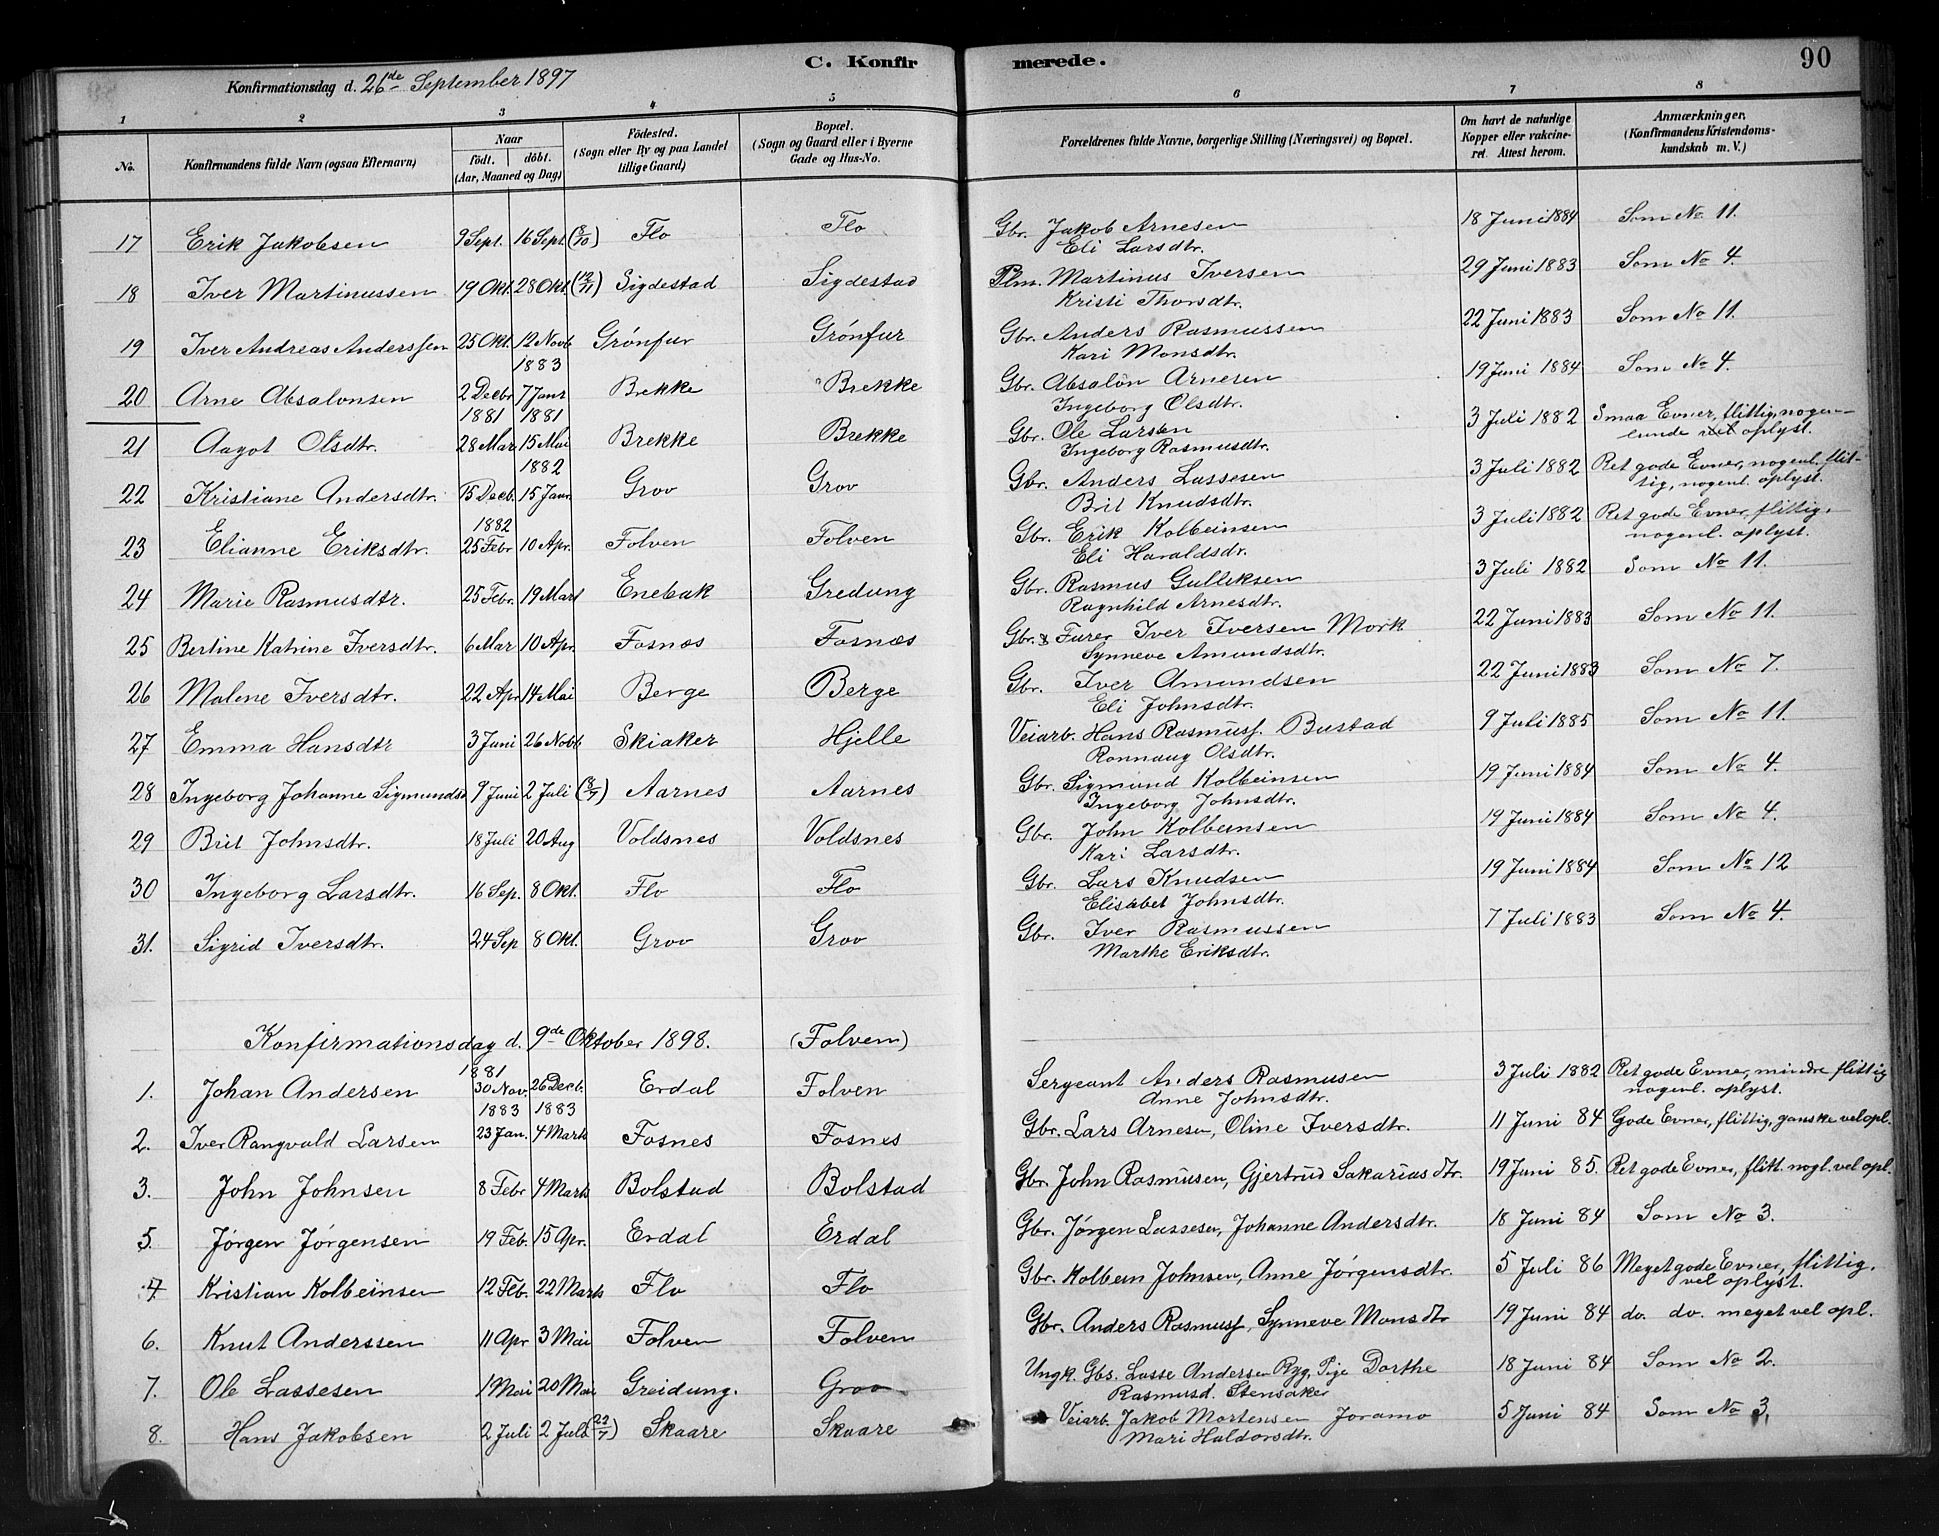 C. Konfirmerede. 90
Konfirmationsdag d. 26de September 1897
1 2 3 4 5 6 7 8
No. Konfirmandens fulde Navn (ogsaa Efternavn) Naar födt. döbt. (Aar, Maaned og Dag) Födested. (Sogn eller By og paa Landet tillige Gaard) Bopæl. (Sogn og Gaard eller i Byerne Gade og Hus-No. Forældrenes fulde Navne, borgerlige Stilling (Næringsvei) og Bopæl. Om havt de naturlige Kopper eller vakcineret. Attest herom. Anmærkninger, (Konfirmandens Kristendomskundskab m. V.)
17 Erik Jakobsen 9 Sept. 16 Sept (8/10) Flo Flo Gbr. Jakob Arnesen 18 Juni 1884 Som No 11.
Eli Larsdtr.
18 Iver Martinussen 19 Okt. 28 Okt. (12/11) Sigdestad Sigdestad Plm. Martinus Iversen 29 Juni 1883 Som No 4.
Kristi Thorsdtr.
19 Iver Andreas Anderssen 25 Okt. 12 Novb Grónfur Grónfur Gbr. Anders Rasmussen 22 Juni 1883 Som No 11.
Kari Monsdtr.
1883
20 Arne Absalonsen 2 Decbr 7 Janr Brekke Brekke Gbr. Absalon Arnesen 19 Juni 1884 Som No 4.
Ingeborg Olsdtr.
1881 1881
21 Aagot Olsdtr. 28 Mar 15 Mai Brekke Brekke Gbr. Ole Larsen 3 Juli 1882 Smaa Evner, flittig, nogen-
Ingeborg Rasmusdtr. lunde oplyst.
1882
22 Kristiane Andersdtr. 15 Decb. 15 Janr. Grov Grov Gbr. Anders Lassesen 3 Juli 1882 Ret gode Evner, nogenl. flit-
Brit Knudsdtr. tig, nogenl. oplyst.
1882
23 Elianne Eriksdtr. 25 Febr 10 Apr. Folven Folven Gbr. Erik Kolbeinsen 3 Juli 1882 Ret gode Evner, flittig,
Eli Haraldsdr. nogenl. oplyst.
24 Marie Rasmusdtr. 25 Febr. 19 Mart Enebak Gredung Gbr. Rasmus Gulliksen 3 Juli 1882 Som No 11.
Ragnhild Arnesdtr.
25 Bertine Katrine Iversdtr. 6 Mar 10 Apr. Fosnæs Fosnæs Gbr. & Furer Iver Iversen Mork 22 Juni 1883 Som No 11.
Synneve Amundsdtr.
26 Malene Iversdtr. 22 Apr 14 Mai Berge Berge Gbr. Iver Amundsen 22 Juni 1883 Som No 7.
Eli Johnsdtr.
27 Emma Hansdtr 3 Juni 26 Novb Skiaker Hjelle Veiarb. Hans Rasmuss. Bustad 9 Juli 1885 Som No 11.
Ronnaug Olsdtr.
28 Ingeborg Johanne Sigmundsd 9 Juni 2 Juli Aarnes Aarnes Gbr. Sigmund Kolbeinsen 19 Juni 1884 Som No 4.
Ingeborg Johnsdtr.
29 Brit Johnsdtr. 18 Juli 20 Aug Voldsnes Voldsnes Gbr. John Kolbeinsen 19 Juni 1884 Som No 4.
Kari Larsdtr.
30 Ingeborg Larsdtr. 16 Sep. 8 Okt. Flo Flo Gbr. Lars Knudsen 19 Juni 1884 Som No 12
Elisabet Johnsdtr.
31. Sigrid Iversdtr. 24 Sep 8 Okt. Grov Grov Gbr. Iver Rasmussen 7 Juli 1883 Som No 4.
Marthe Eriksdtr.
Konfirmationsdag d. 9de Oktober 1898. (Folven)
1881
1. Johan Andersen 30 Nov. 26 Decb. Erdal Folven Sergeant Anders Rasmusen 3 Juli 1882 Ret gode Evner, mindre flittig
Anne Johnsdtr. nogenl. oplyst.
1883 1883
2. Iver Rangvald Larsen 23 Jan. 4 Marts Fosnes Fosnes Gbr. Lars Arnesen, Oline Iversdtr. 11 Juni 84 Gode Evner, flittig, ganske vel opl.
3. John Johnsen 8 Febr 4 Marts Bolstad Bolstad Gbr. John Rasmusen, Gjertrud Sakariasdtr. 19 Juni 85. Ret gode Evner, flitt. nogl. vel opl.
5. Jørgen Jørgensen 19 Feb. 15 Apr. Erdal Erdal Gbr. Jørgen Lassesen, Johanne Andersdtr. 18 Juni 84 Som No 3.
4. Kristian Kolbeinsen 12 Feb. 22 Marts Flo Flo Gbr. Kolbein Johnsen, Anne Jørgensdtr. 5 Juli 86 Meget gode Evner, flittig,
vel oplyst.
6. Knut Anderssen 11 Apr 3 Mai Folven Folven Gbr. Anders Rasmuss, Synneve Monsdtr 19 Juni 84 do. do. meget vel opl.
7. Ole Lassesen 1 Mai 20 Mai Greidung. Grov Ungk. Gbs. Lasse Andersen Ryg, Pige Dorthe 18 Juni 84 Som No 2.
Rasmusd. Stensaker
8. Hans Jakobsen 2 Juli 2 Juli (22/7) Skaare Skaare Veiarb. Jakob Mortensen Joramo 5 Juni 84 Som No 3.
Mari Haldorsdtr.